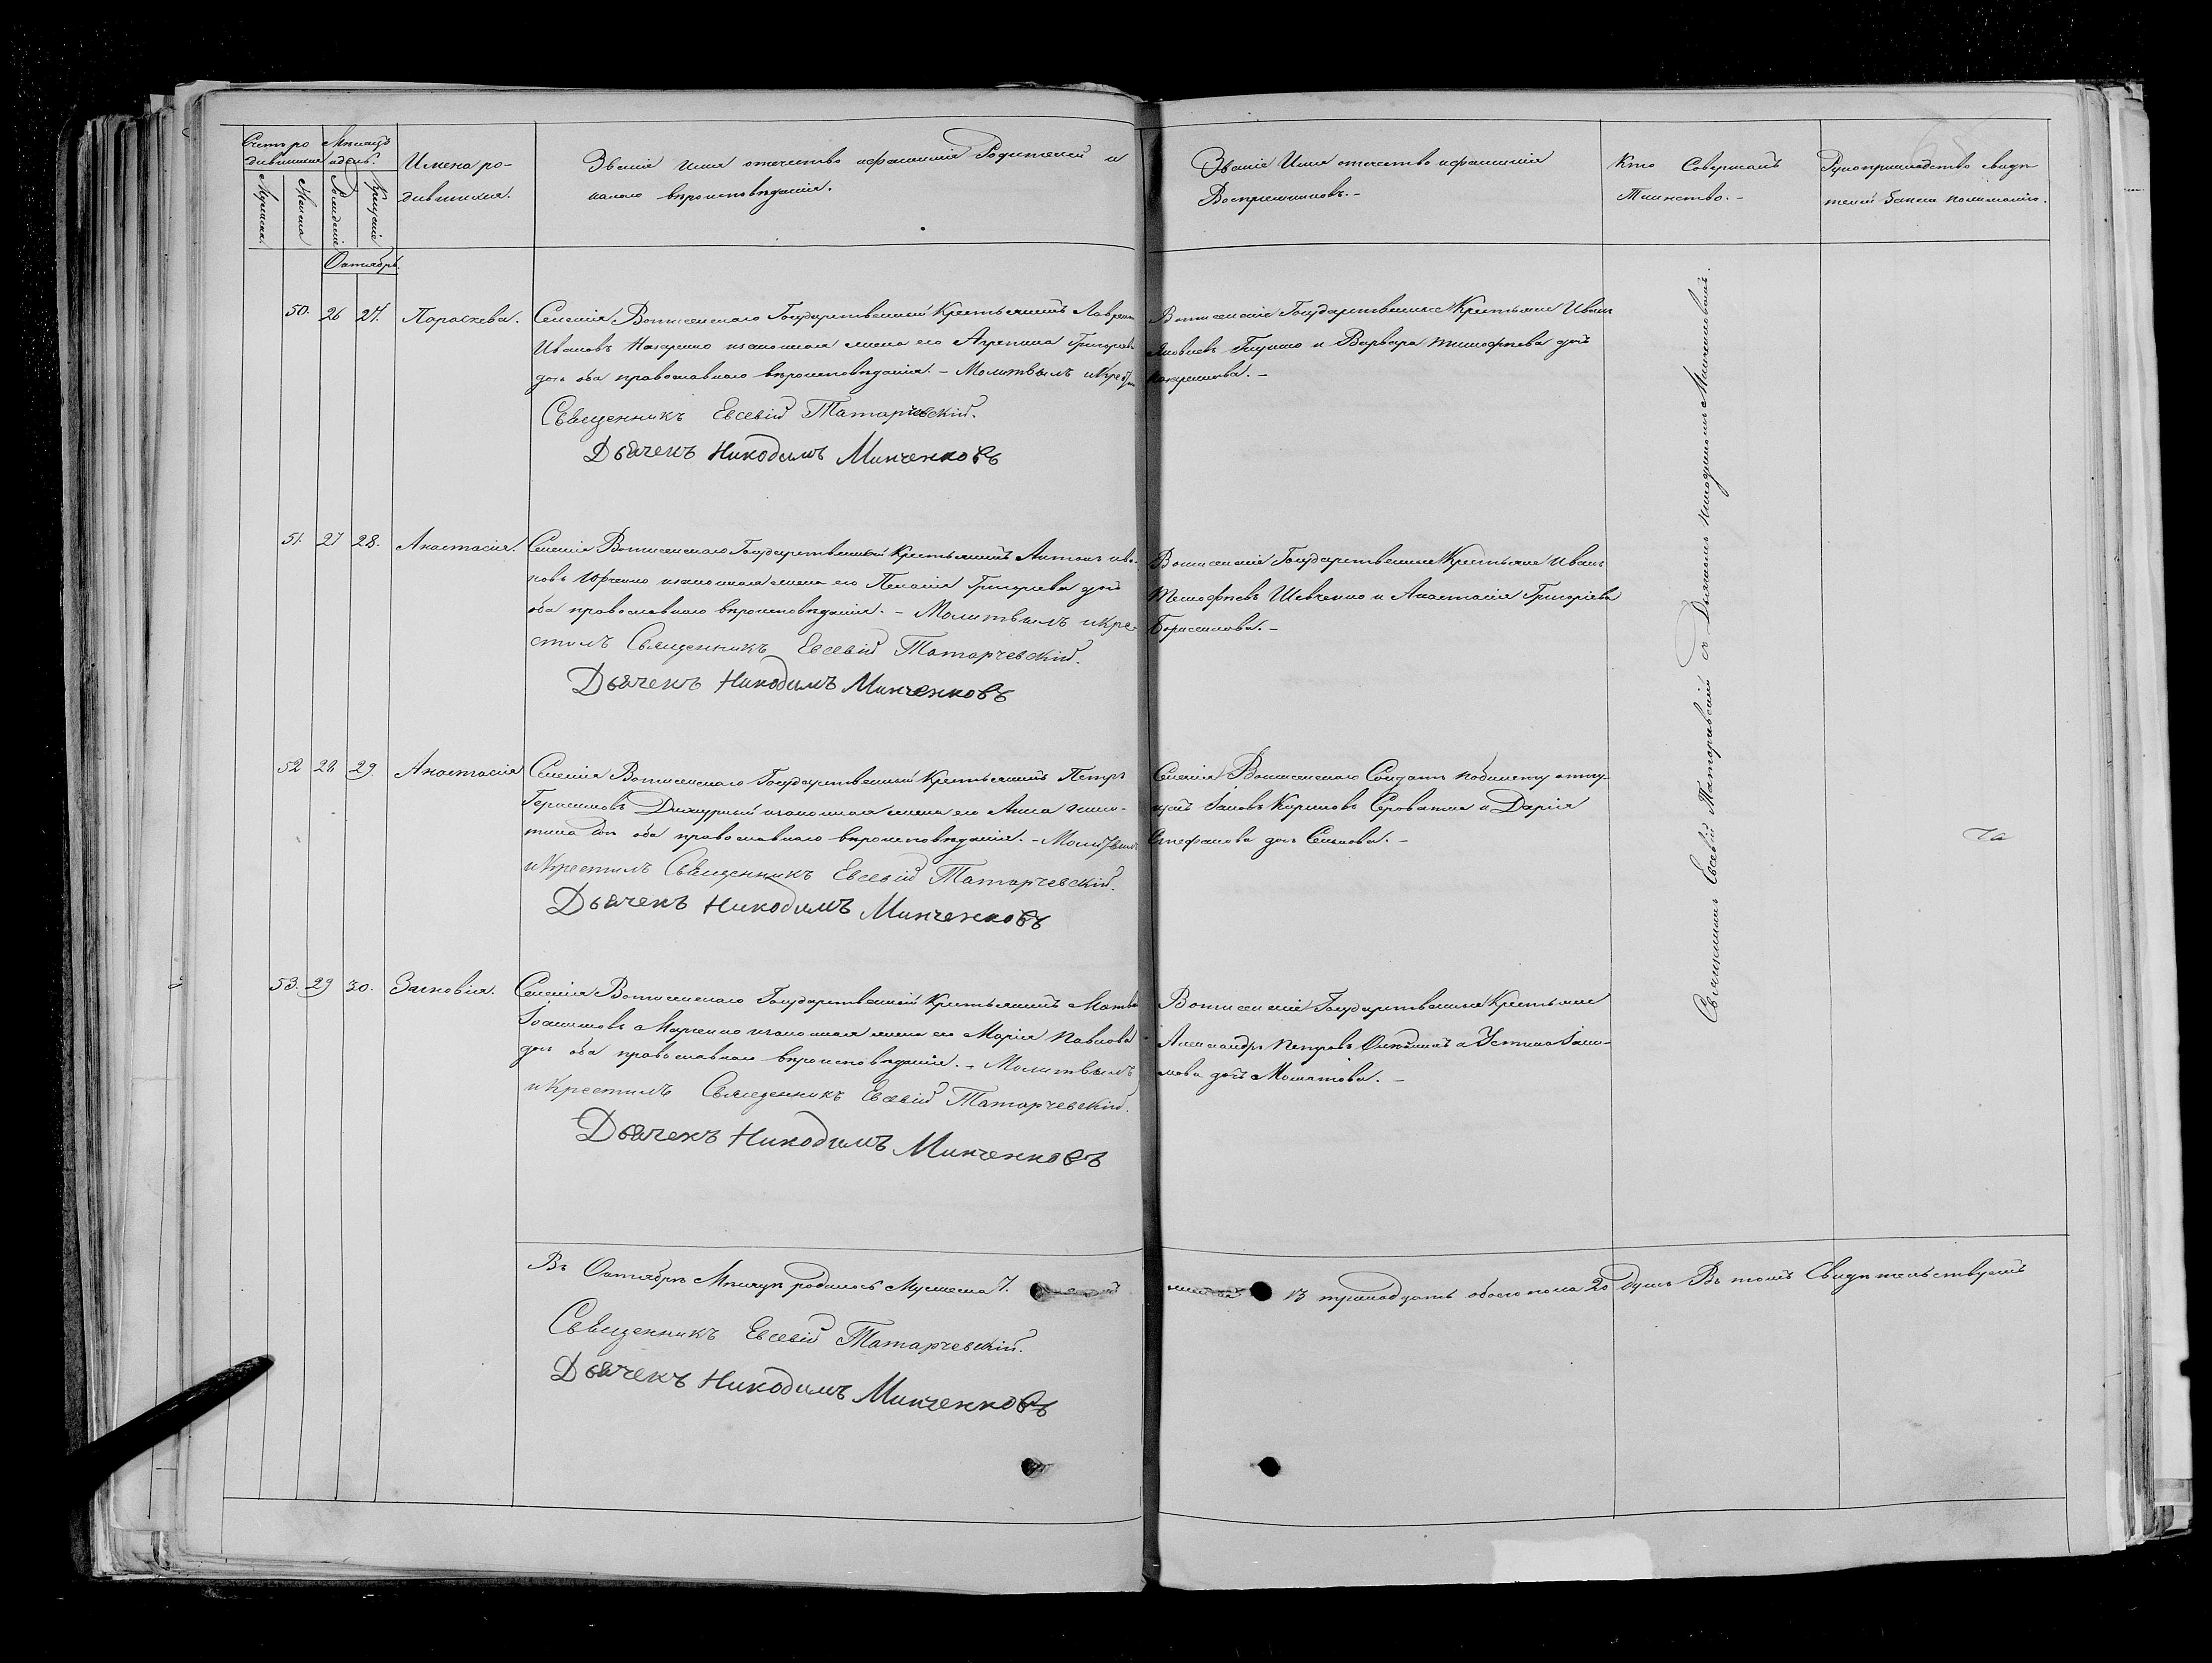 Счетъ ро
дившихся
Мѣсяцъ
и день.
Имена ро-
дившихся.
Званіе Имя отечество и фамилія Родителей и
какого вѣроисповѣданія.
Званіе Имя отечество и фамилія
Воспріемниковъ. -
Кто Совершалъ
Таинство. -
Рукоприкладство свидѣ
телей записи по желанію.
Мужеска
Женска
Рожденіе
Крещеніе
Октябрь
50. 26 27. Параскева.
Селенія Государственный Крестьянинъ
Ивановъ Назаренко и законная жена его Агрепина Григорьева
дочь оба православнаго вѣроисповѣданія. - Молитвилъ и
Священникъ Евсевій Татарчевскій.
Дьячекъ Никодимъ Минченковъ
Государственные Крестьяне Иванъ
Яковлевъ и Варвара Тимофѣева дочь
51. 27 28. Анастасія.
Селенія Государственный Крестьянинъ Антонъ Ива-
новъ Юрченко и законная жена его Пелагія Григорьева дочь
оба православнаго вѣроисповѣданія. - Молитвилъ и кре-
стилъ Священникъ Евсевій Татарчевскій.
Дьячекъ Никодимъ Минченковъ
Государственные Крестьяне Иванъ
Тимофѣевъ Шевченко и Анастасія Григоріева
Борисенкова. -
52 28 29 Анастасія
Селенія Государственный Крестьянинъ Петръ
Герасимовъ и законная жена его Анна
дочь оба православнаго вѣроисповѣданія. - Молитвилъ
и Крестилъ Священникъ Евсевій Татарчевскій.
Дьячекъ Никодимъ Минченковъ
Селенія Солдатъ по билету отпу-
щенъ Іаковъ Кириловъ и Дарія
Стефанова дочь
53. 29 30. Зиновія.
Селенія Государственный Крестьянинъ
Іоакимовъ Марченко и законная жена его Марія Павлова
дочь оба православнаго вѣроисповѣданія. - Молитвилъ
и Крестилъ Священникъ Евсевій Татарчевскій.
Дьячекъ Никодимъ Минченковъ
Государственные Крестьяне
Александръ Петровъ и Устина
дочь
Священникъ Евсевій Татарчевскій съ Дьячкомъ Никодимомъ Минченковымъ.
Въ Октябрѣ Мѣсяцѣ родилось Мужеска 7.
13 тринадцать обоего пола 20 душъ Въ томъ Свидѣтельствуемъ
Священникъ Евсевій Татарчевскій.
Дьячекъ Никодимъ Минченковъ